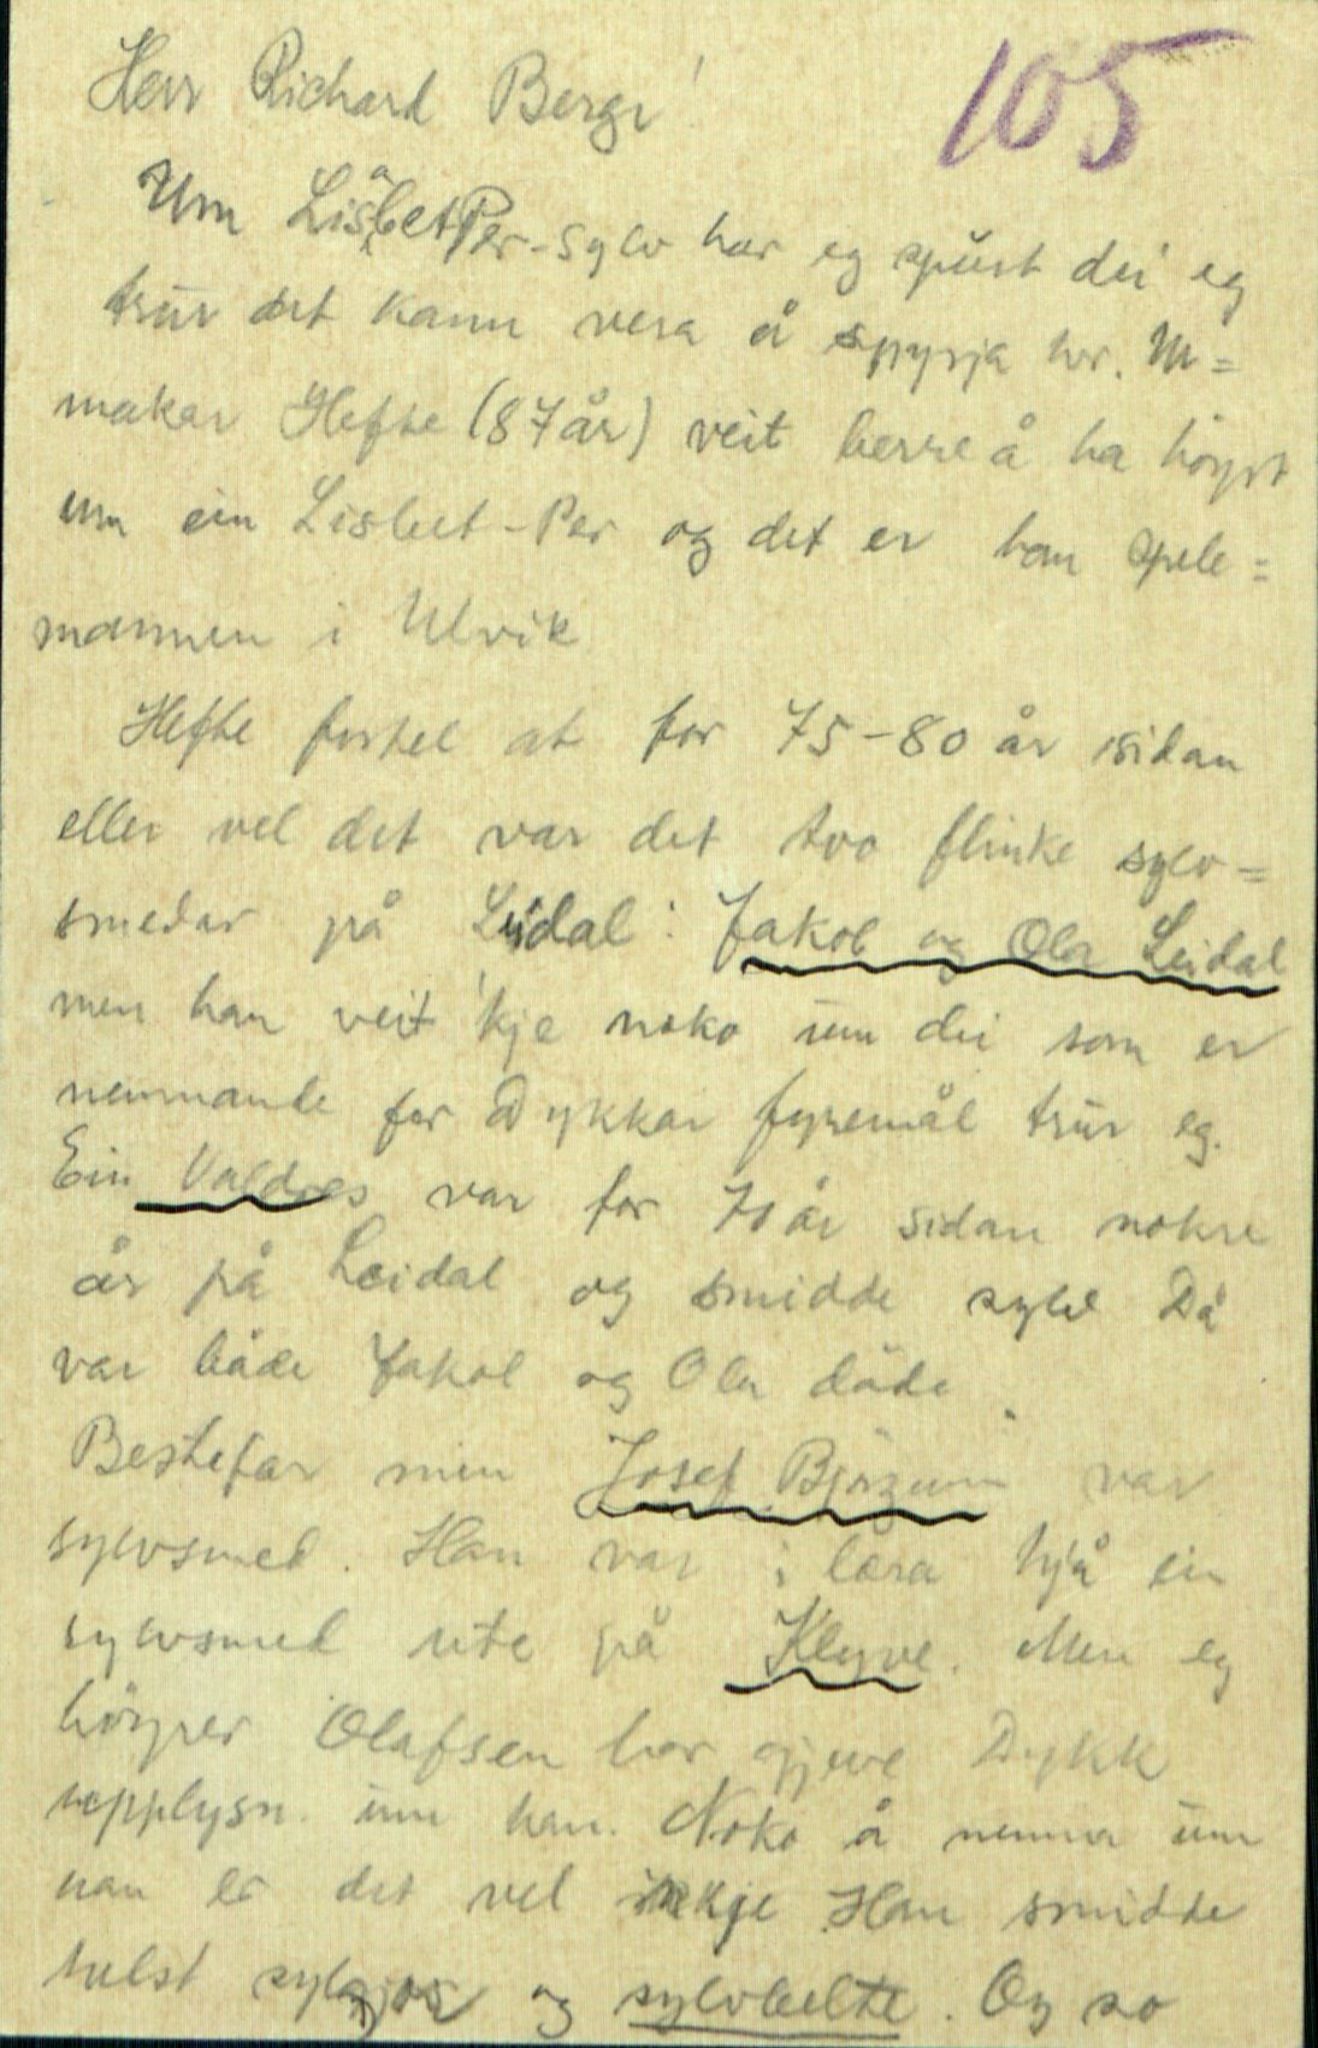 105
Herr Richard Berge!
Um LisabetPer-sylv har eg spurt dei eg
trur det kann vera å spyrja hr. M=
makar Hefte (87år) veit berre å ha höyrt
um ein Lisbet-Per og det er han spele=
mannen i Ulvik
Hefte fortel at for 75-80 år sidan
eller vel det var det tvo flinke sylv=
smedar på Leidal: Jakob og Ola Leidal
men han veit 'kje noko um dei som er
nemnande for Dykkar fyremål trur eg.
Ein Valdres var for 70 år sidan nokre
år på Leidal og smidde sylv Då
var både Jakob og Ola döde.
Bestefar min Josef Björgum var
sylvsmed. Han var i læra hjå ein
sylvsmed ute på Klyve. Men eg
höyrer Olafsen har gjeve Dykk
upplysn. um han. Noko å nemna um
han er det vel inkje Han smidde
helst sylgjor og sylvbelte. Og so